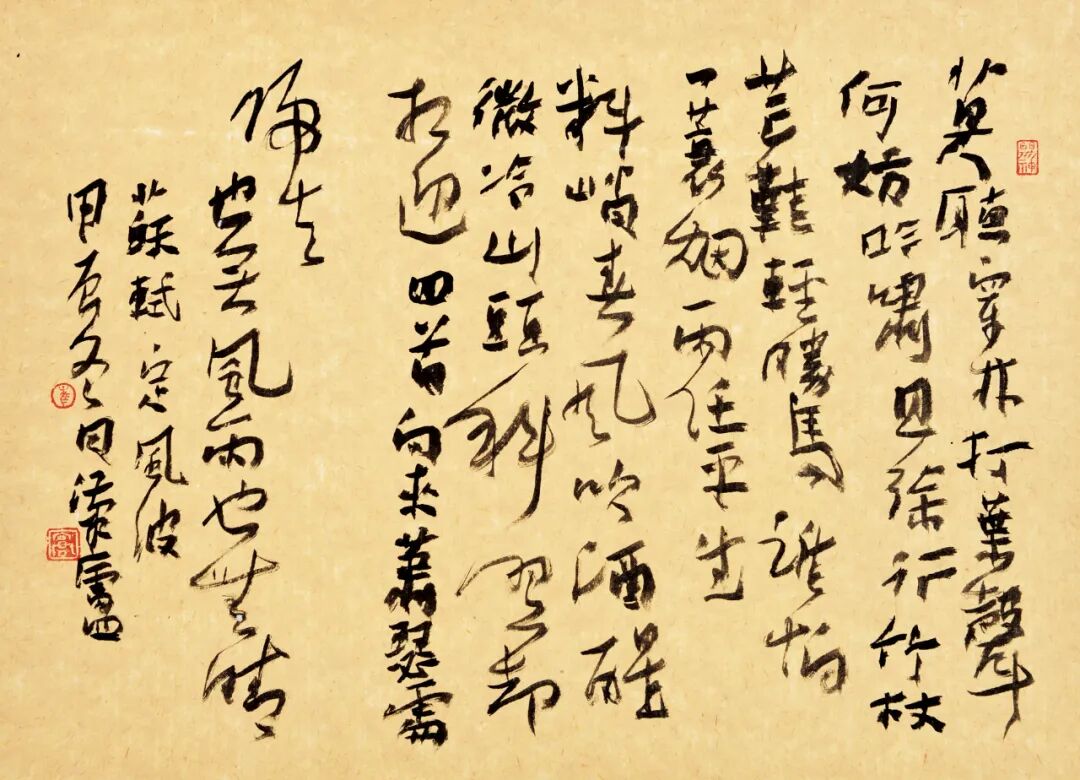 莫聽穿林打葉聲
何妨吟嘯且徐行竹杖
芒鞋輕勝馬誰怕
一蓑烟雨任平生
料峭春風吹酒醒
微冷山頭斜照却
相迎回首向來蕭瑟處
歸去
也无風雨也無晴
蘇軾定風波
甲辰冬日